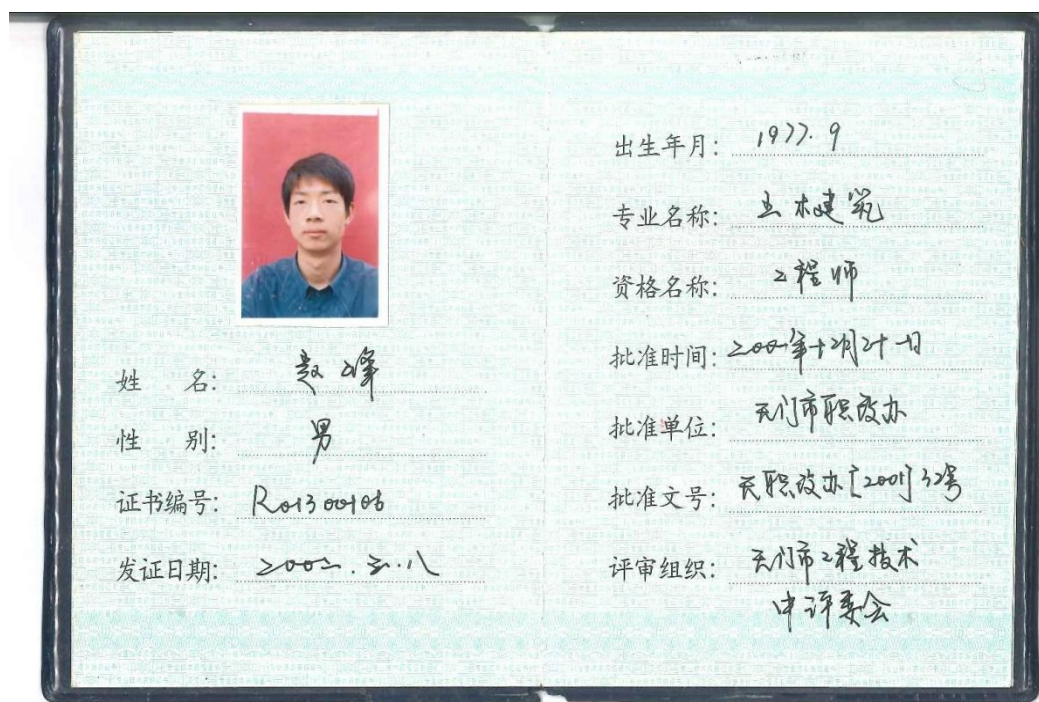 姓 名:
性 别: 男
证书编号: R01300106
发证日期: 2002.三.八
出生年月: 1977.9
专业名称: 土木建筑
资格名称: 工程师
批准时间: 2001年12月21日
批准单位: 天门市职改办
批准文号: 天职改办[2001]32号
评审组织: 天门市工程技术
中评委会